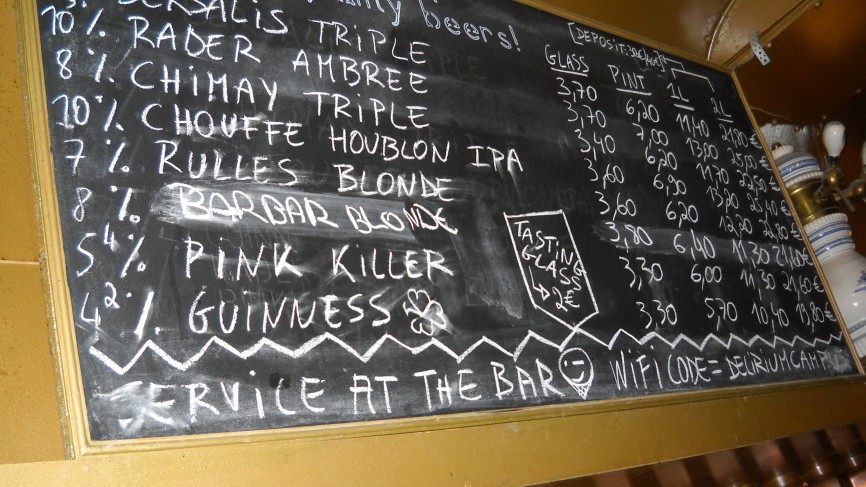 beers!
TRIPLE [DEPOSIT:
GLASS PINT 1L 2L
10% RADER AMBREE 3,70 7,00 13,00 25,00€
8% CHIMAY TRIPLE 3,40 6,20 11,70 22,50€
10% CHOUFFE HOUBLON IPA 3,60 6,90 13,20 25,40€
7% RULLES BLONDE 3,60 6,20 12,20
8% BARBAR BLONDE 3,80 6,40 11,30
5,4% PINK KILLER 3,30 6,00 11,30 21,60€
4,2% GUINNESS 3,30 5,70 10,40 19,80€
TASTING
GLASS
→ 2€
SERVICE AT THE BAR WiFi CODE = DELIRIUMCAMP